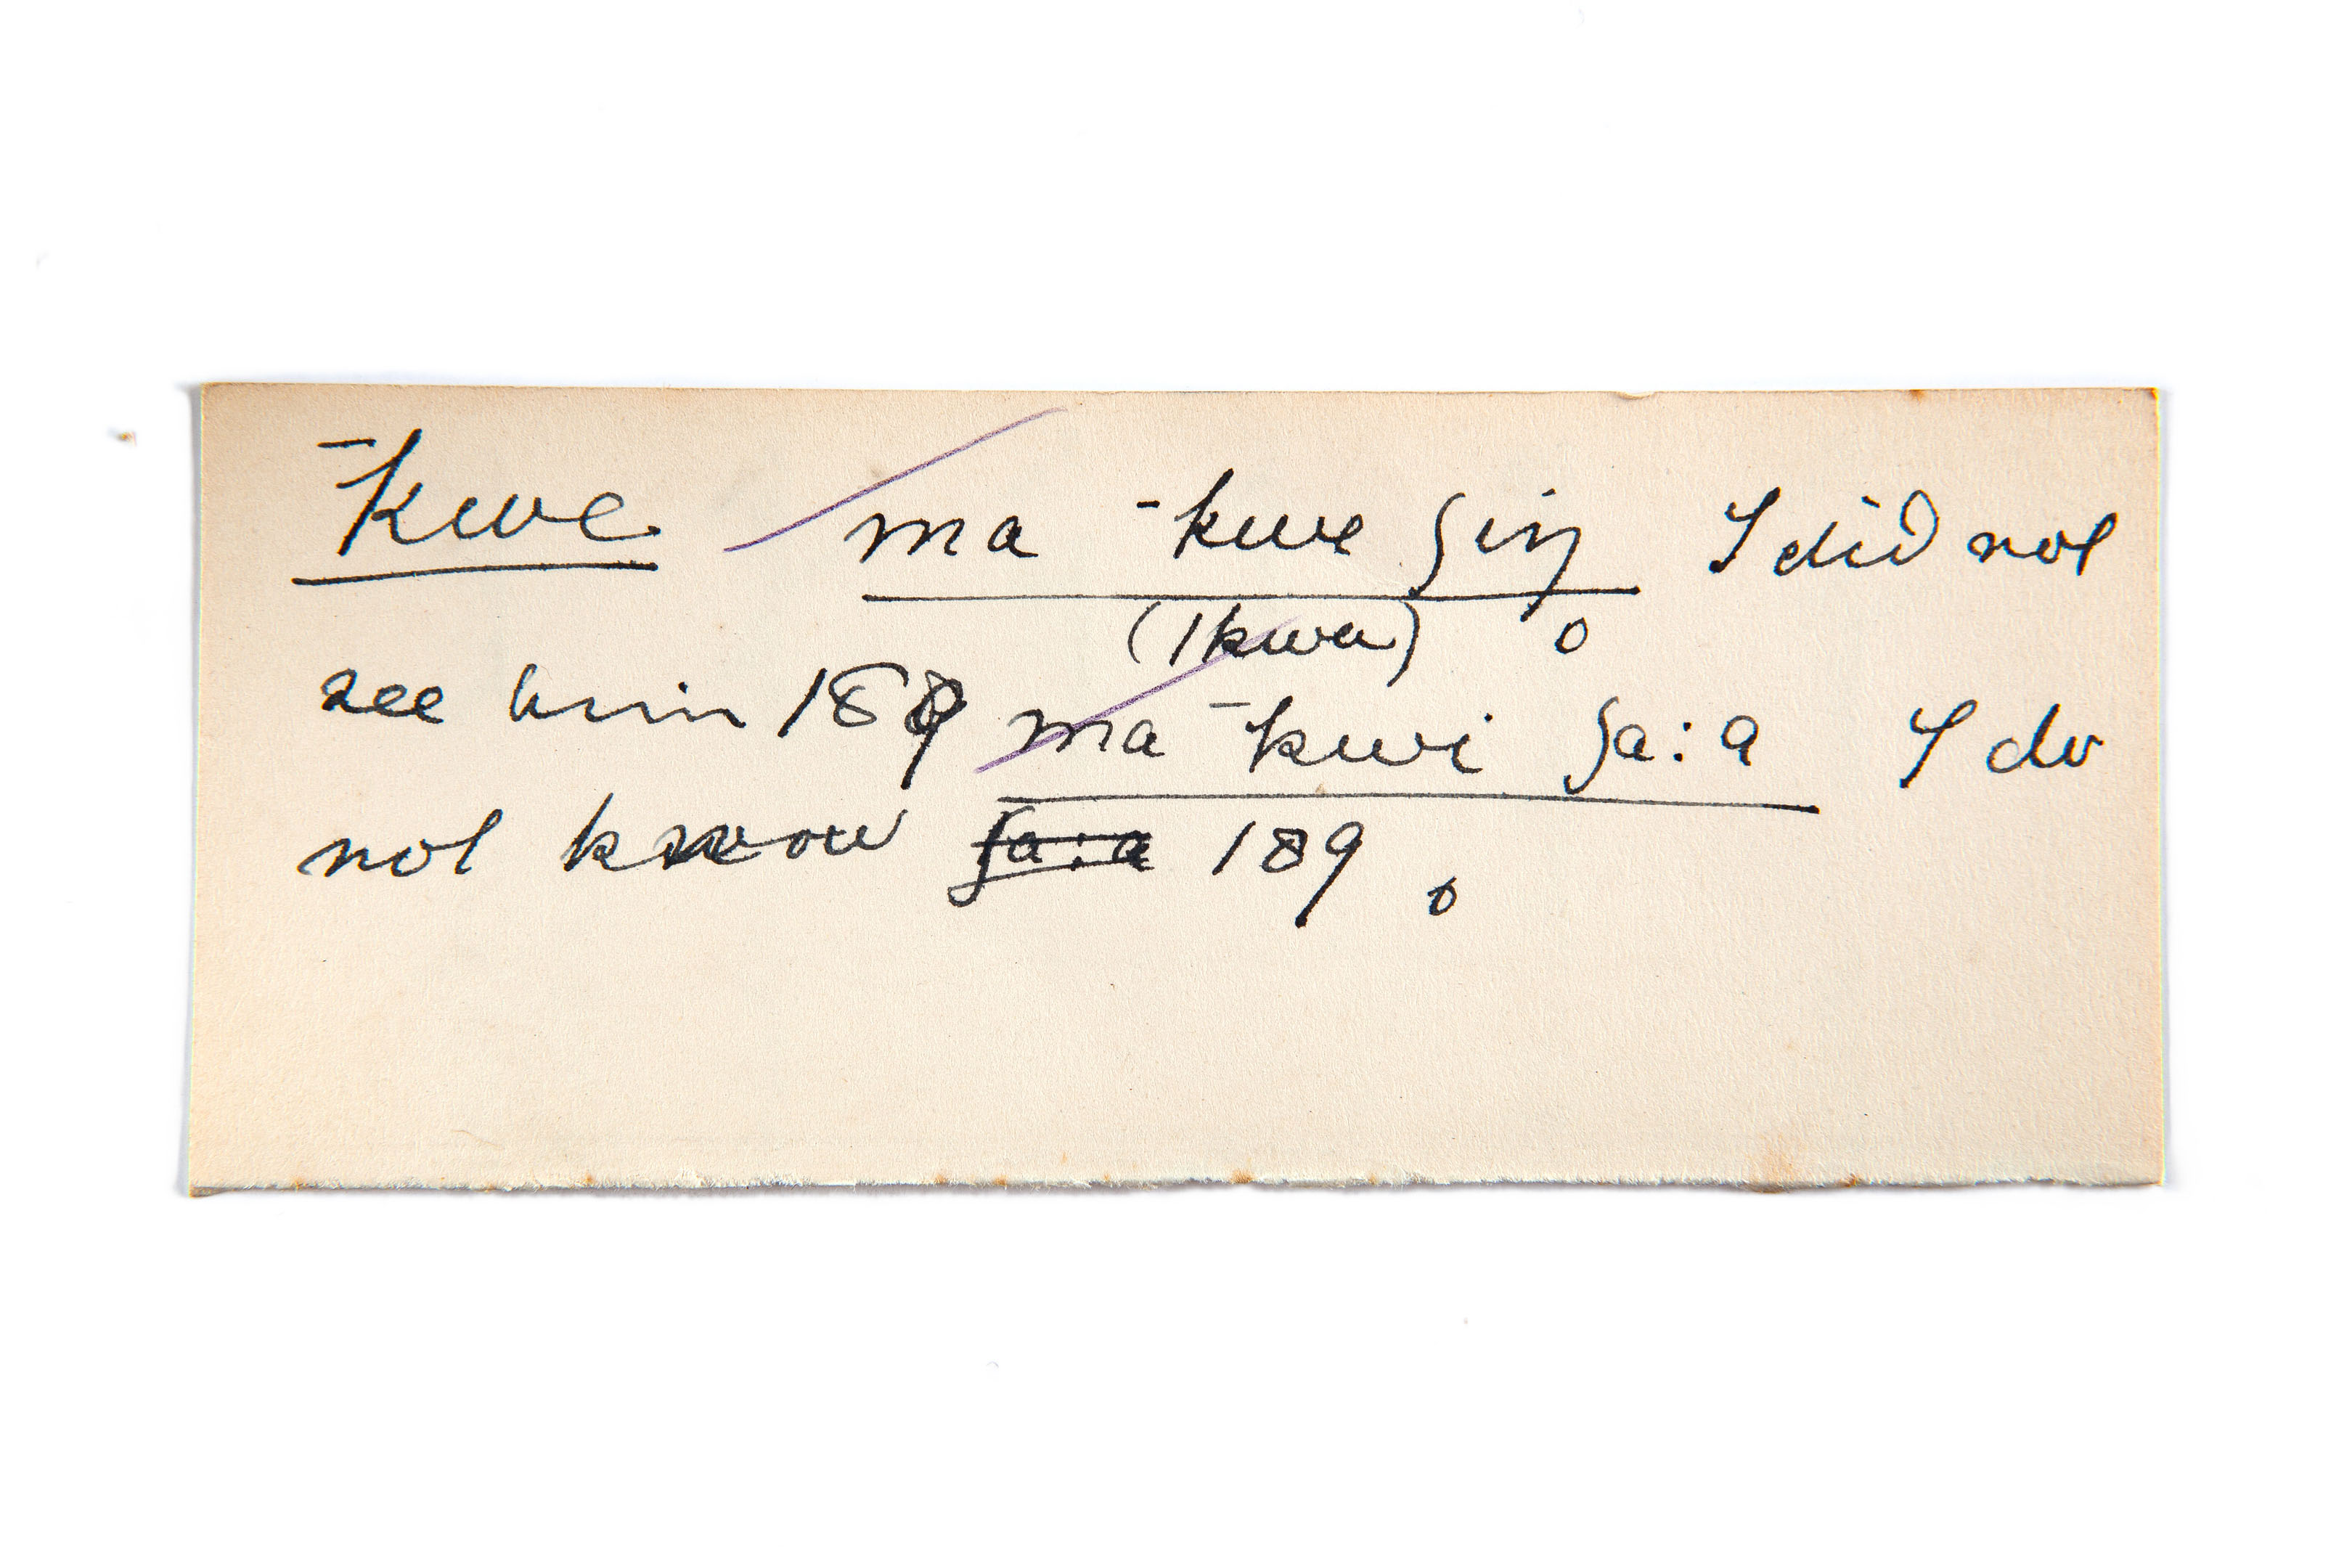 ¯kwe ma ¯kwe ʃiŋ I did not
(1kwa) o
see him 189 ma ¯kwi ʃa:a I do
not know ʃa:a 189 o